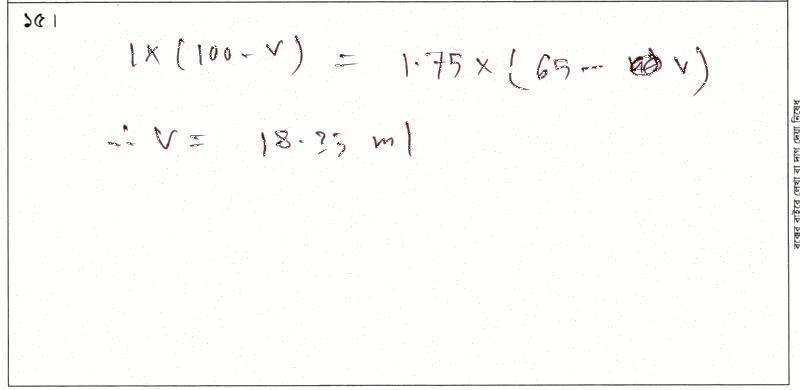 ১৫।
1 x (100 - v) = 1.75 x (65 - v)
∴ V = 18.33 ml
বক্সের বাইরে লেখা বা দাগ দেয়া নিষেধ